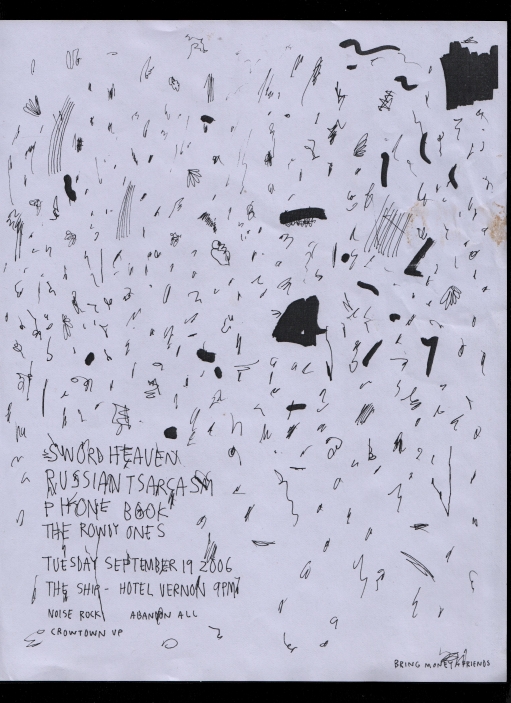 SWORD HEAVEN
RUSSIAN TSARCASM
PHONE BOOK
THE ROWDY ONES
TUESDAY SEPTEMBER 19 2006
THE SHIP - HOTEL VERNON 9PM
NOISE ROCK ABANDON ALL
CROWTOWN VP
BRING MONEY & FRIENDS